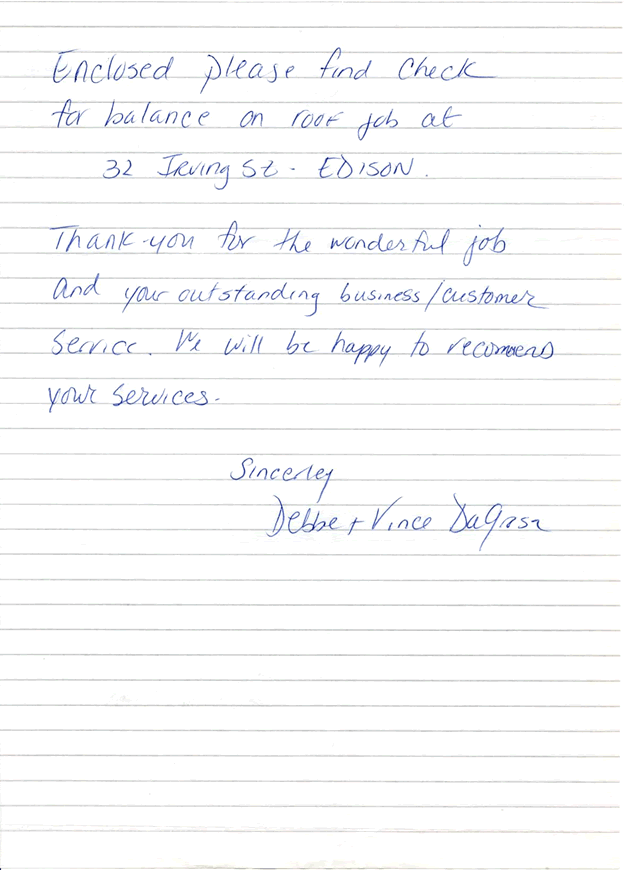 Enclosed please find check
for balance on roof job at
32 Irving St - EDISON.
Thank-you for the wonderful job
and your outstanding business/customer
service. We will be happy to recommend
your services.
Sincerley
Debbe + Vince